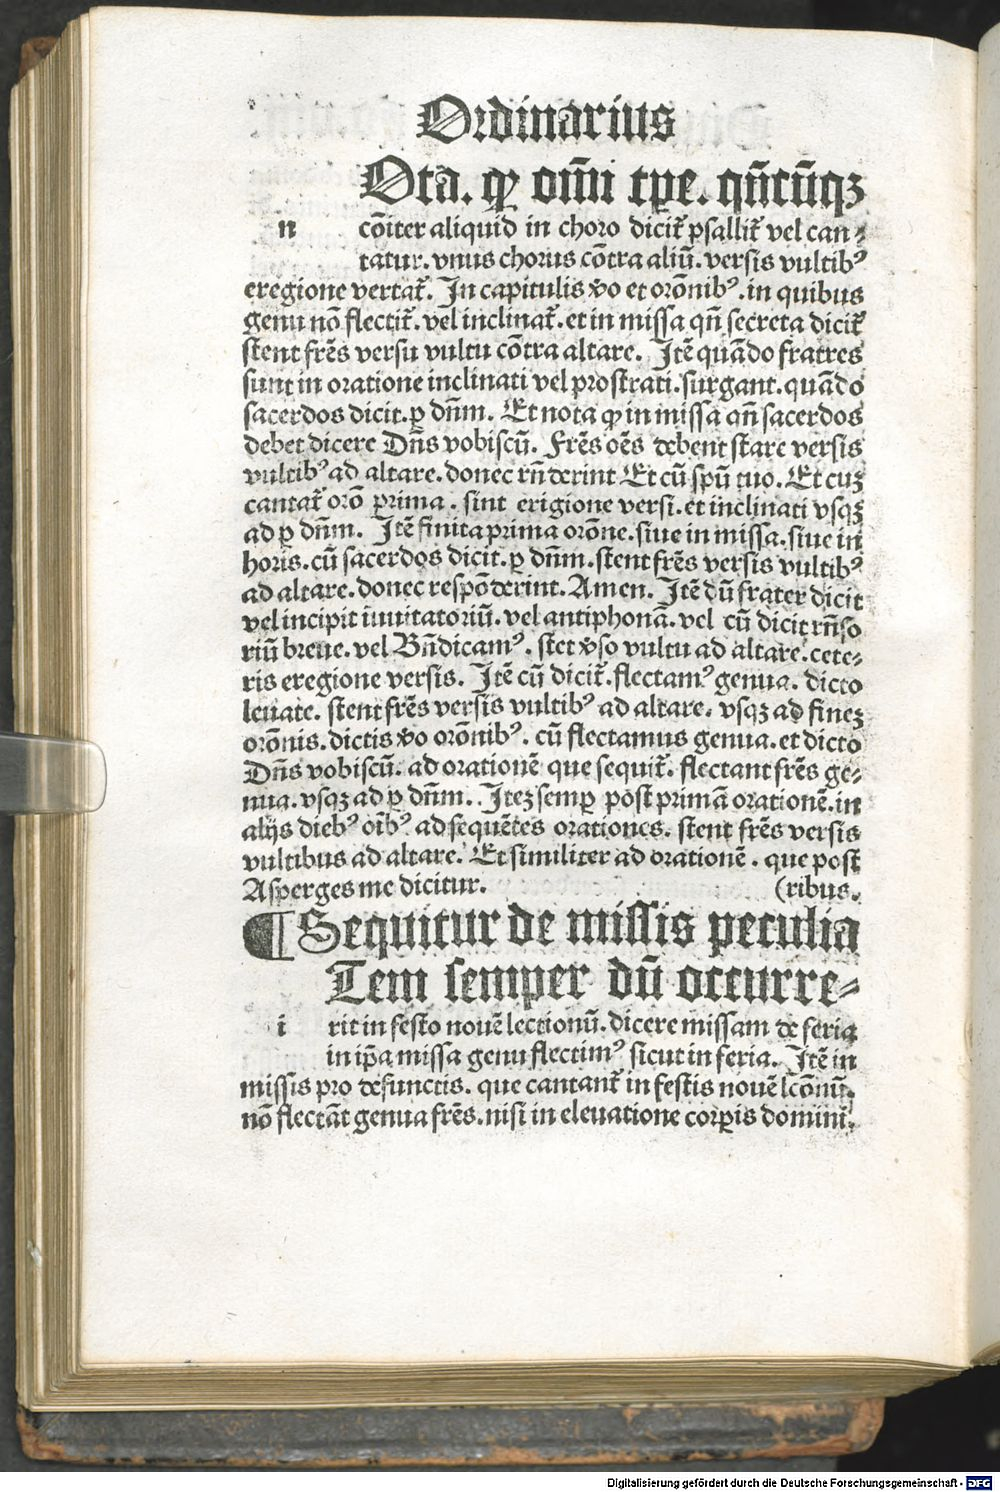 Ordinarius
Ota. ꝙ om̄i tꝑe. qn̄cūqꝫ
n cōiter aliquid in choro dicit᷑ psallit᷑ vel can-
tatur. vnus chorus cōtra aliū. versis vultibꝰ
eregione vertat᷑. In capitulis ꝟo et orōnibꝰ. in quibus
genu nō flectit᷑. vel inclinat᷑. et in missa qn̄ secreta dicit᷑
stent frēs versu vultu cōtra altare. Itē quādo fratres
sunt in oratione inclinati vel prostrati. surgant. quādo
sacerdos dicit. ꝑ dn̄m. Et nota ꝙ in missa qn̄ sacerdos
debet dicere Dn̄s vobiscū. Frēs oēs debent stare versis
vultibꝰ ad altare. donec rn̄derint Et cū spū tuo. Et cuꝫ
cantat᷑ orō prima. sint erigione versi. et inclinati vsqꝫ
ad ꝑ dn̄m. Itē finita prima orōne. siue in missa. siue in
horis. cū sacerdos dicit. ꝑ dn̄m. stent frēs versis vultibꝰ
ad altare. donec respōderint. Amen. Itē dū frater dicit
vel incipit inuitatoriū. vel antiphonā. vel cū dicit rn̄so
riū breue. vel Bn̄dicamꝰ. stet ꝟso vultu ad altare. cete-
ris eregione versis. Itē cū dicit᷑. flectamꝰ genua. dicto
leuate. stent frēs versis vultibꝰ ad altare. vsqꝫ ad fineꝫ
orōnis. dictis ꝟo orōnibꝰ. cū flectamus genua. et dicto
Dn̄s vobiscū. ad orationē que sequit᷑. flectant frēs ge-
nua. vsqꝫ ad ꝑ dn̄m. Iteꝫ semꝑ post primā orationē. in
alijs diebꝰ oībꝰ ad sequētes orationes. stent frēs versis
vultibus ad altare. Et similiter ad orationē. que post
Asperges me dicitur. (ribus.
¶ Sequitur de missis peculia
Tem semper dū occurre-
i rit in festo nouē lectionū. dicere missam de feria
in ip̄a missa genu flectimꝰ sicut in feria. Itē in
missis pro defunctis. que cantant᷑ in festis nouē lcōnū.
nō flectāt genua frēs. nisi in eleuatione corꝑis domini.
Digitalisierung gefördert durch die Deutsche Forschungsgemeinschaft - DFG